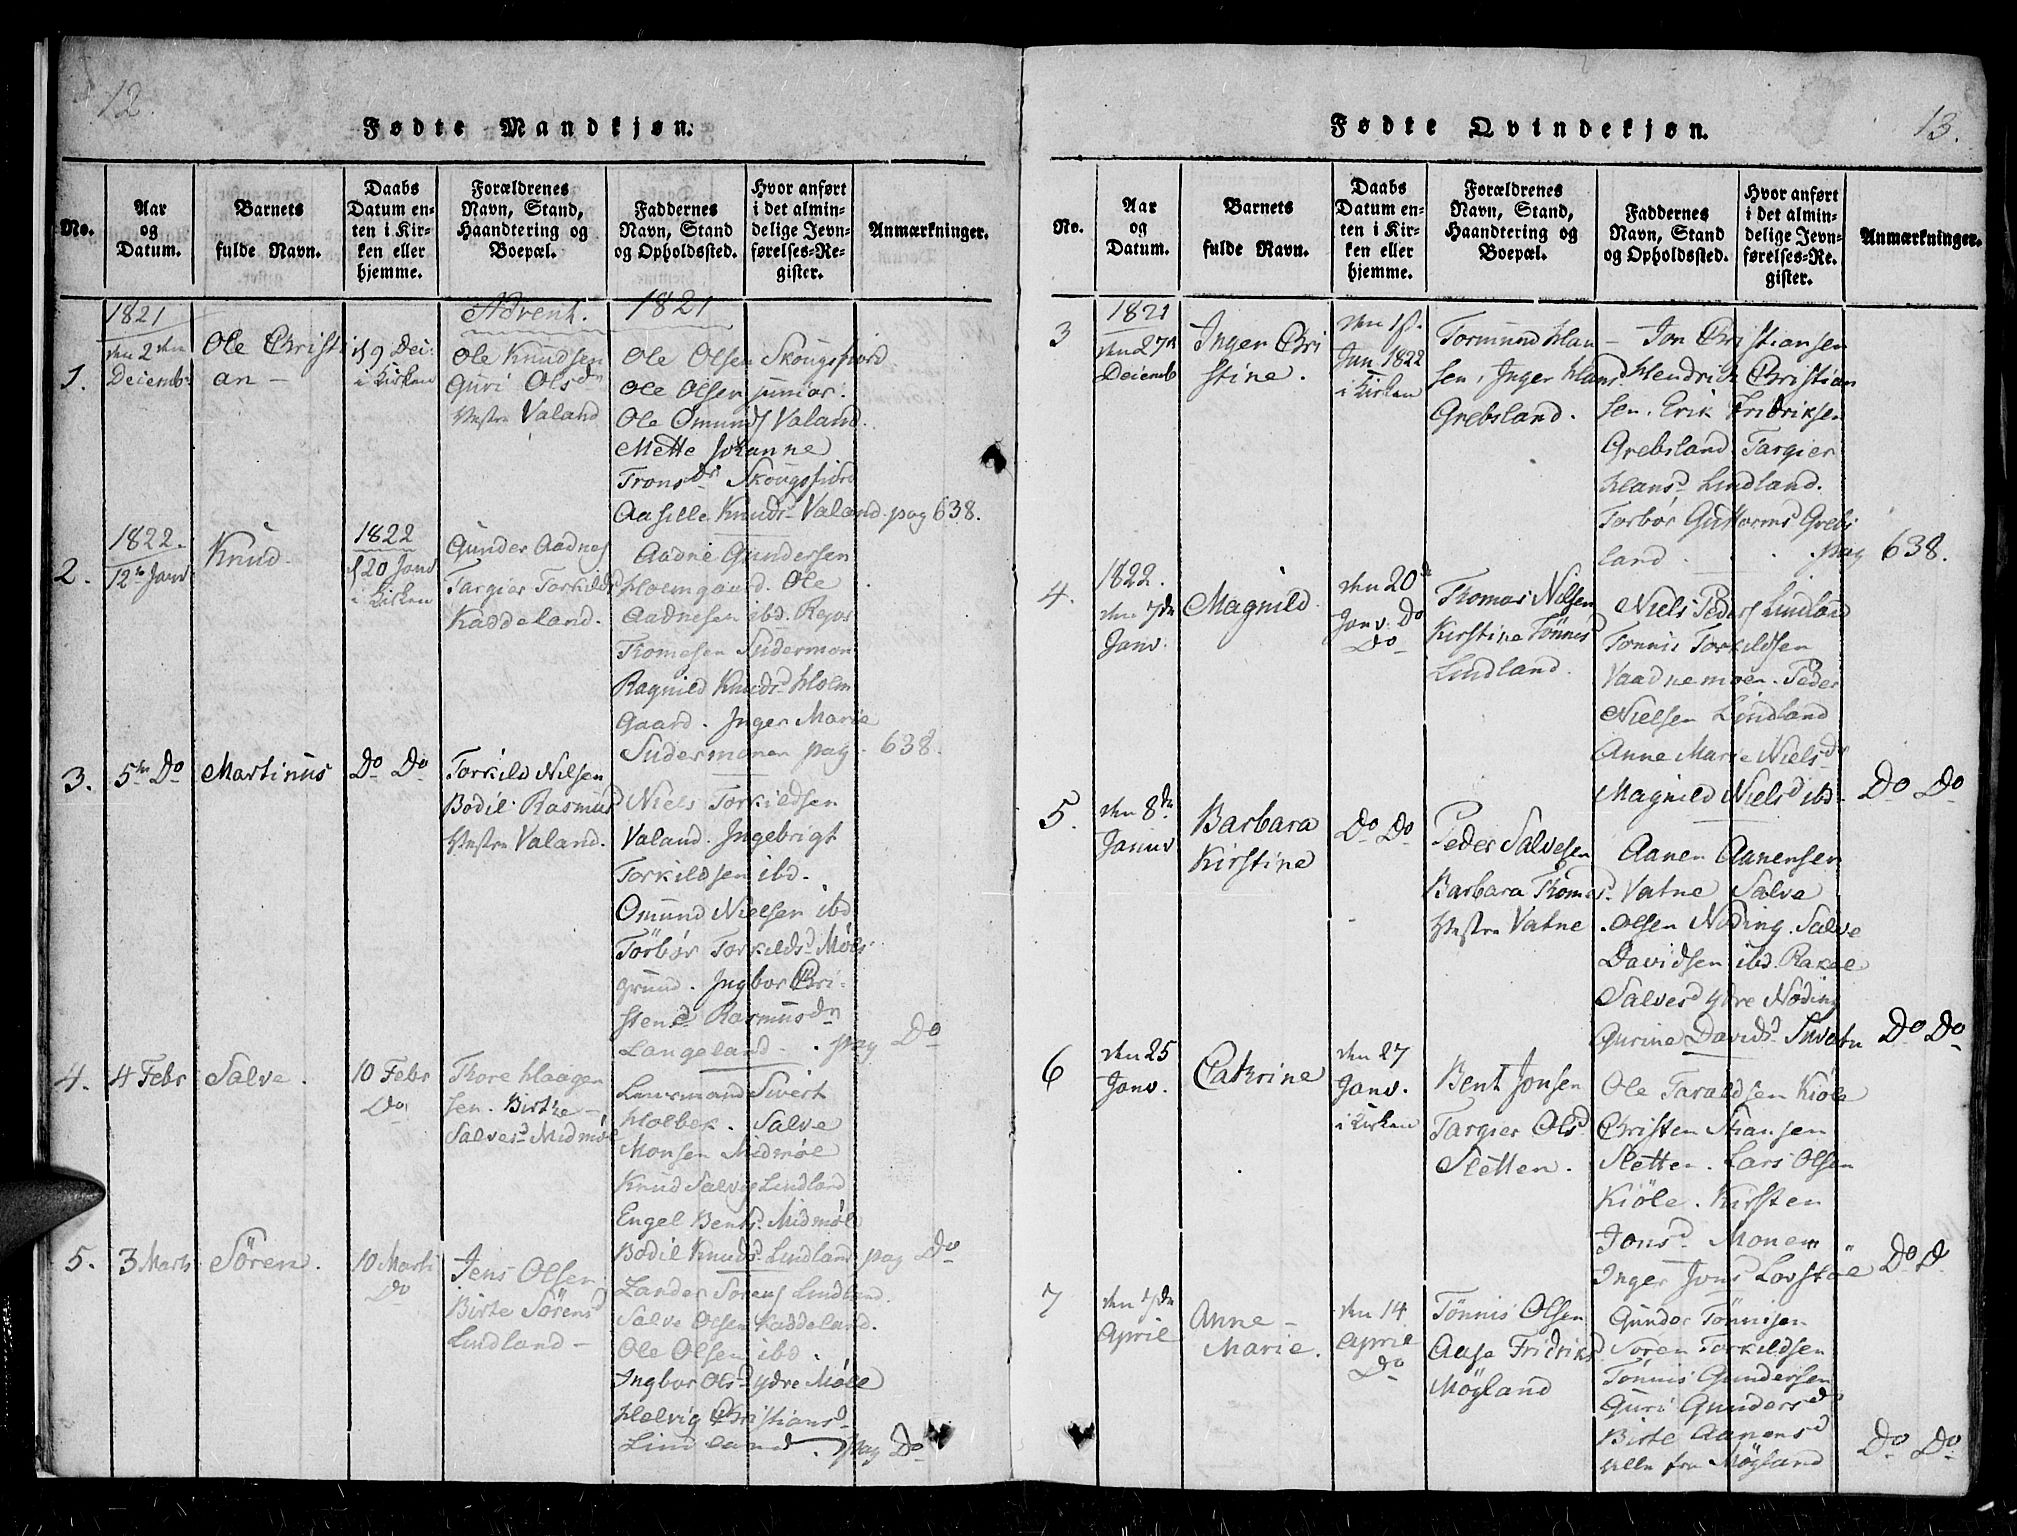 12.
Fødte Mandkjøn.
No.
Aar
og
Datum.
Barnets
fulde Navn.
Daabs
Datum en-
ten i Kir-
ken eller
hjemme.
Forældrenes
Navn, Stand,
Haandtering og
Boepæl.
Faddernes
Navn, Stand
og Opholdssted.
Hvor anført
i det almin-
delige Jevn-
førelses-Re-
gister.
Anmærkninger.
Advent. 1821
1.
1821
den 2den
Decembr
Ole Christi
an -
d 9 Dec:
i Kirken
Ole Knudsen
Guri Olsdr
Vestre Valand
Ole Olsen Skougsfiord
Ole Olsen junior.
Ole Omunds Valand.
Mette Johanne
Tronsdr Skougsfiord
Aasille Knudsd Valand pag 638.
2.
1822.
12te Janv
Knud.
1822
d 20 Janv
i Kirken
Gunder Aadnes
Targier Torkildsd
Kaddeland.
Aadne Gundersen
Holmgaard. Ole
Aadnesen ibd.
Thomesen Sudermon
Ragnild Knudsd Holm
Gaard. Inger Marie
Sudermonen pag. 638.
3.
5te Do
Martinus
Do Do
Torkild Nilsen
Bodil Rasmusd
Vestre Valand.
Niels Torkildsen
Valand. Ingebrigt
Torkildsen ibd.
Omund Nielsen ibd
Torbør Torkildsd Møls
grund. Ingbor Chri-
stensd Rasmusdr
Langeland - . pag Do
4.
4 Febr
Salve.
10 Febr
Do
Thore Haagen
sen. Birthe
Salvesd Midmøl
Lensmand Sivert
Holbek. Salve
Monsen Midmøl
Knud Salves Lindland
Engel Bentsd Midmøl
Bodil Knudsd Lindland pag Do
5.
3 Marts
Sören.
10 Marti
Do
Jens Olsen
Birte Sørensd
Lindland -
Zander Sørens Lindland.
Salve Olsen Kaddeland.
Ole Olsen ibd.
Ingbor Olsd ydre Møll
Helvig Christiansd
Lindland. pag Do
13.
Fødte Qvindekjøn.
No.
Aar
og
Datum.
Barnets
fulde Navn.
Daabs
Datum en-
ten i Kir-
ken eller
hjemme.
Forældrenes
Navn, Stand,
Haandtering og
Boepæl.
Faddernes
Navn, Stand
og Opholdssted.
Hvor anført
i det almin-
delige Jevn-
førelses-Re-
gister.
Anmærkninger.
3
1821
den 27n
Decemb
Inger Chri
stine.
den 1st.
Jan. 1822
i Kirken
Tormund Han-
sen, Inger Hansd
Grebsland.
Jon Christiansen
Hendrich Christian
sen. Erik Fridriksen
Grebsland Targier
Hansd Lindland.
Torbör Guttormsd Grebs
land . . pag 638.
4.
1822.
den 7de
Janv.
Magnild.
den 20d
Janv. Do
Do
Thomas Nilsen
Kirstine Tönnisd
Lindland.
Niels Peders Lindland
Tønnis Torkildsen
Vaadnemoen. Peder
Nielsen Lindland
Anne Marie Nielsdr
Magnild Nielsd ibd. Do Do
5.
den 8de
Januv
Barbara
Kirstine
Do Do
Peder Salvesen
Barbara Thomasd
Vestre Vatne
Aanen Aanensen
Vatne Salve
Olsen Nøding. Salve
Davidsen ibd. Rakel
Salvesd ydre Nøding
Gurine Davidsd Do Do
6
den 25
Janv.
Cathrine
den 27
Janv.
i Kirken
Bent Jonsen
Targier Olsd
Sletten.
Ole Taraldsen Kiöle
Christen Hansen
Sletten. Lars Olsen
Kiöle. Kirsten
Jonsd Monem
Inger Jonsd Lovstøl Do Do
7
den 7de
April
Anne
Marie.
den 14
April
Do
Tönnis Olsen
Aase Fridriksd
Møgland
Gunder Tønnisen
Søren Torkildsen
Tønnis Gundersen
Guri Gundersd
Birte Aanensd
alle fra Møgland Do Do